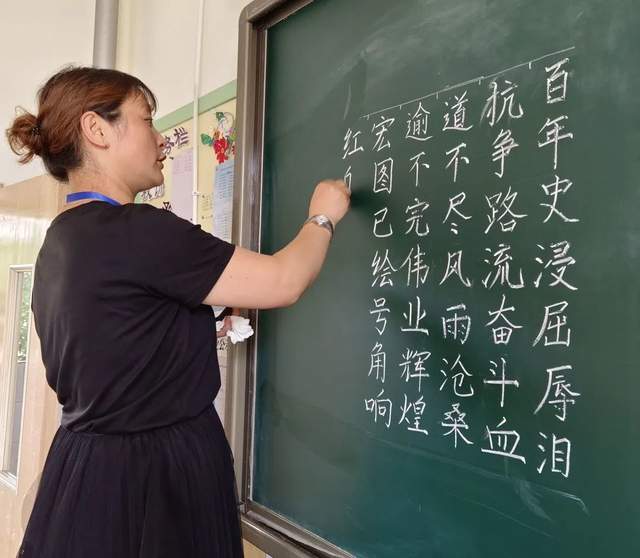 百年史浸屈辱泪
抗争路流奋斗血
道不尽风雨沧桑
逾不完伟业辉煌
宏图已绘号角响
红
务栏